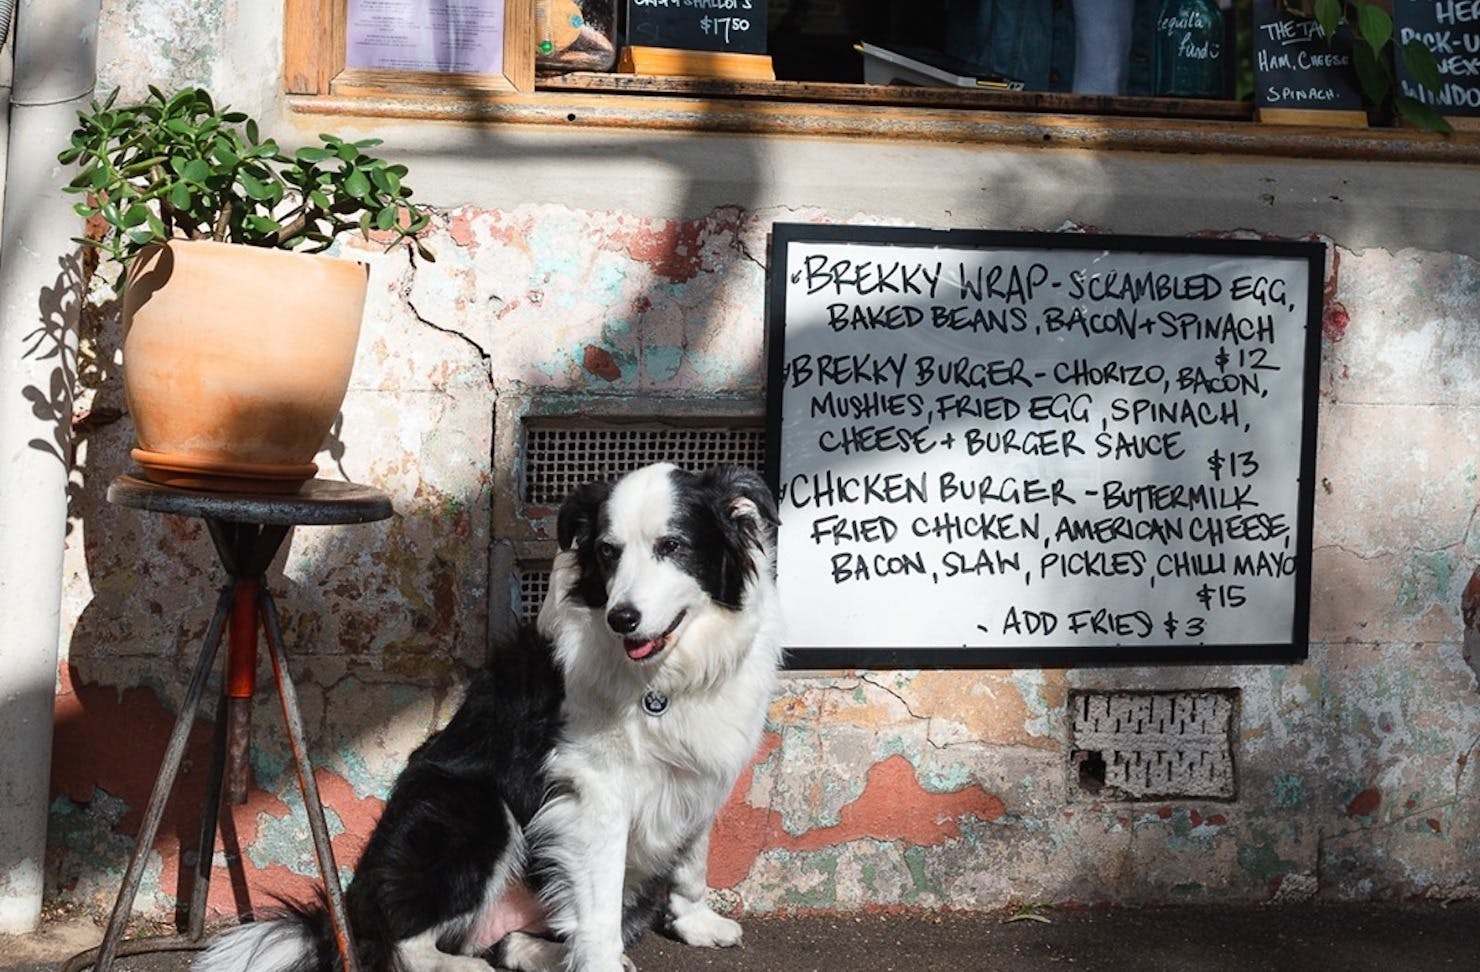 CRISPY SHALLOTS
$17.50
tequila
fund
THE
HAM, CHEESE
SPINACH.
PICK-U
NEX
WINDO
BREKKY WRAP - SCRAMBLED EGG,
BAKED BEANS, BACON + SPINACH
$12
BREKKY BURGER - CHORIZO, BACON,
MUSHIES, FRIED EGG, SPINACH,
CHEESE + BURGER SAUCE
$13
CHICKEN BURGER - BUTTERMILK
FRIED CHICKEN, AMERICAN CHEESE,
BACON, SLAW, PICKLES, CHILLI MAYO
$15
- ADD FRIES $3